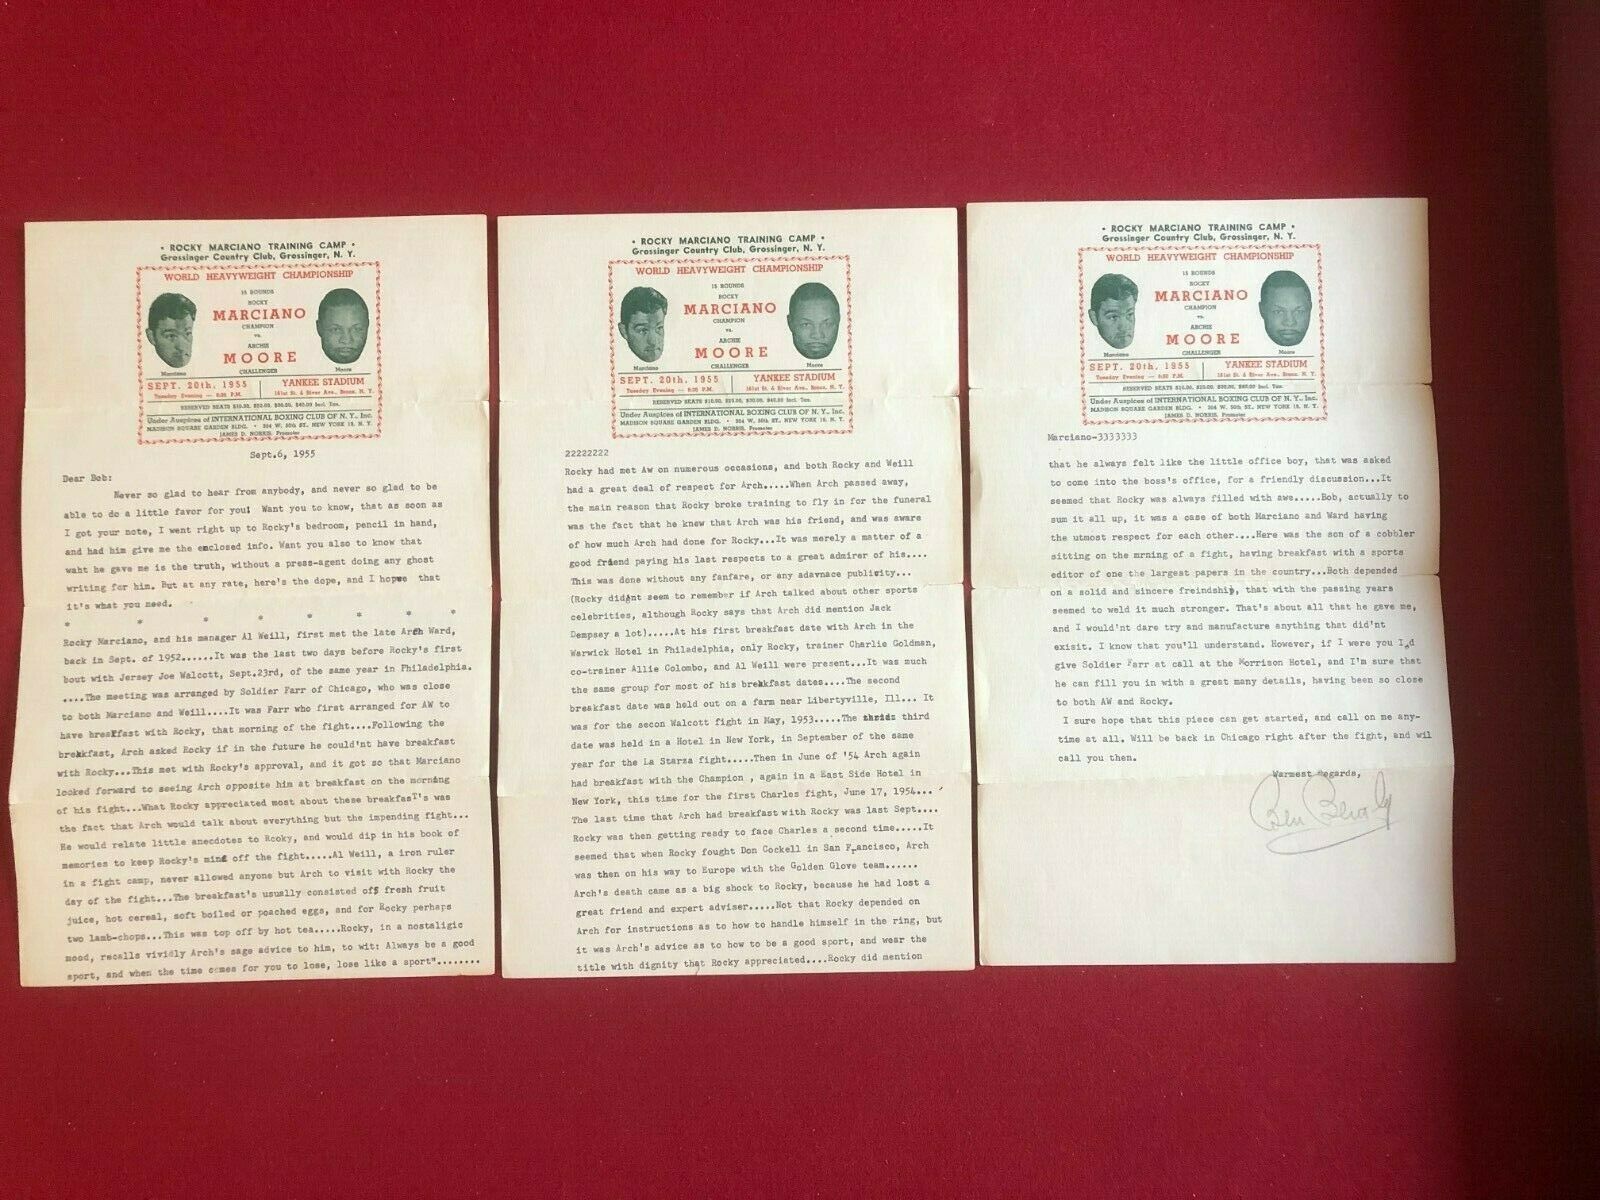 • ROCKY MARCIANO TRAINING CAMP •
Grossinger Country Club, Grossinger, N. Y.
WORLD HEAVYWEIGHT CHAMPIONSHIP
15 ROUNDS
ROCKY
MARCIANO
CHAMPION
vs.
ARCHIE
MOORE
CHALLENGER
Marciano
Moore
SEPT. 20th, 1955
Tuesday Evening — 9:30 P.M.
YANKEE STADIUM
161st St. & River Ave., Bronx, N. Y.
RESERVED SEATS $10.00, $20.00, $30.00, $40.00 Incl. Tax.
Under Auspices of INTERNATIONAL BOXING CLUB OF N. Y., Inc.
MADISON SQUARE GARDEN BLDG. • 304 W. 50th ST., NEW YORK 19, N. Y.
JAMES D. NORRIS, Promoter
Sept.6, 1955
Dear Bob:
Never so glad to hear from anybody, and never so glad to be
able to do a little favor for you! Want you to know, that as soon as
I got your note, I went right up to Rocky's bedroom, pencil in hand,
and had him give me the enclosed info. Want you also to know that
waht he gave me is the truth, without a press-agent doing any ghost
writing for him. But at any rate, here's the dope, and I hope that
it's what you need.
* * * * * * *
Rocky Marciano, and his manager Al Weill, first met the late Arch Ward,
back in Sept. of 1952......It was the last two days before Rocky's first
bout with Jersey Joe Walcott, Sept.23rd, of the same year in Philadelphia.
....The meeting was arranged by Soldier Farr of Chicago, who was close
to both Marciano and Weill....It was Farr who first arranged for AW to
have breakfast with Rocky, that morning of the fight....Following the
breakfast, Arch asked Rocky if in the future he could'nt have breakfast
with Rocky...This met with Rocky's approval, and it got so that Marciano
looked forward to seeing Arch opposite him at breakfast on the morning
of his fight...What Rocky appreciated most about these breakfast's was
the fact that Arch would talk about everything but the impending fight...
He would relate little anecdotes to Rocky, and would dip in his book of
memories to keep Rocky's mind off the fight.....Al Weill, a iron ruler
in a fight camp, never allowed anyone but Arch to visit with Rocky the
day of the fight...The breakfast's usually consisted off fresh fruit
juice, hot cereal, soft boiled or poached eggs, and for Rocky perhaps
two lamb-chops...This was top off by hot tea.....Rocky, in a nostaligic
mood, recalls vividly Arch's sage advice to him, to wit: Always be a good
sport, and when the time comes for you to lose, lose like a sport"........
• ROCKY MARCIANO TRAINING CAMP •
Grossinger Country Club, Grossinger, N. Y.
WORLD HEAVYWEIGHT CHAMPIONSHIP
15 ROUNDS
ROCKY
MARCIANO
CHAMPION
vs.
ARCHIE
MOORE
CHALLENGER
Marciano
Moore
SEPT. 20th, 1955
Tuesday Evening — 9:30 P.M.
YANKEE STADIUM
161st St. & River Ave., Bronx, N. Y.
RESERVED SEATS $10.00, $20.00, $30.00, $40.00 Incl. Tax.
Under Auspices of INTERNATIONAL BOXING CLUB OF N. Y., Inc.
MADISON SQUARE GARDEN BLDG. • 304 W. 50th ST., NEW YORK 19, N. Y.
JAMES D. NORRIS, Promoter
22222222
Rocky had met Aw on numerous occasions, and both Rocky and Weill
had a great deal of respect for Arch.....When Arch passed away,
the main reason that Rocky broke training to fly in for the funeral
was the fact that he knew that Arch was his friend, and was aware
of how much Arch had done for Rocky...It was merely a matter of a
good friend paying his last respects to a great admirer of his....
This was done without any fanfare, or any adavnace publicity...
(Rocky didnt seem to remember if Arch talked about other sports
celebrities, although Rocky says that Arch did mention Jack
Dempsey a lot).....At his first breakfast date with Arch in the
Warwick Hotel in Philadelphia, only Rocky, trainer Charlie Goldman,
co-trainer Allie Colombo, and Al Weill were present...It was much
the same group for most of his breakfast dates....The second
breakfast date was held out on a farm near Libertyville, Ill... It
was for the secon Walcott fight in May, 1953.....The third
date was held in a Hotel in New York, in September of the same
year for the La Starza fight....Then in June of '54 Arch again
had breakfast with the Champion , again in a East Side Hotel in
New York, this time for the first Charles fight, June 17, 1954...
The last time that Arch had breakfast with Rocky was last Sept....
Rocky was then getting ready to face Charles a second time.....It
seemed that when Rocky fought Don Cockell in San Francisco, Arch
was then on his way to Europe with the Golden Glove team......
Arch's death came as a big shock to Rocky, because he had lost a
great friend and expert adviser.....Not that Rocky depended on
Arch for instructions as to how to handle himself in the ring, but
it was Arch's advice as to how to be a good sport, and wear the
title with dignity that Rocky appreciated....Rocky did mention
• ROCKY MARCIANO TRAINING CAMP •
Grossinger Country Club, Grossinger, N. Y.
WORLD HEAVYWEIGHT CHAMPIONSHIP
15 ROUNDS
ROCKY
MARCIANO
CHAMPION
vs.
ARCHIE
MOORE
CHALLENGER
Marciano
Moore
SEPT. 20th, 1955
Tuesday Evening — 9:30 P.M.
YANKEE STADIUM
161st St. & River Ave., Bronx, N. Y.
RESERVED SEATS $10.00, $20.00, $30.00, $40.00 Incl. Tax.
Under Auspices of INTERNATIONAL BOXING CLUB OF N. Y., Inc.
MADISON SQUARE GARDEN BLDG. • 304 W. 50th ST., NEW YORK 19, N. Y.
JAMES D. NORRIS, Promoter
Marciano-3333333
that he always felt like the little office boy, that was asked
to come into the boss's office, for a friendly discussion...It
seemed that Rocky was always filled with awe.....Bob, actually to
sum it all up, it was a case of both Marciano and Ward having
the utmost respect for each other....Here was the son of a cobbler
sitting on the mrning of a fight, having breakfast with a sports
editor of one the largest papers in the country...Both depended
on a solid and sincere freindship, that with the passing years
seemed to weld it much stronger. That's about all that he gave me,
and I would'nt dare try and manufacture anything that did'nt
exisit. I know that you'll understand. However, if I were you I,d
give Soldier Farr at call at the Morrison Hotel, and I'm sure that
he can fill you in with a great many details, having been so close
to both AW and Rocky.
I sure hope that this piece can get started, and call on me any-
time at all. Will be back in Chicago right after the fight, and wil
call you then.
Warmest Regards,
Ben